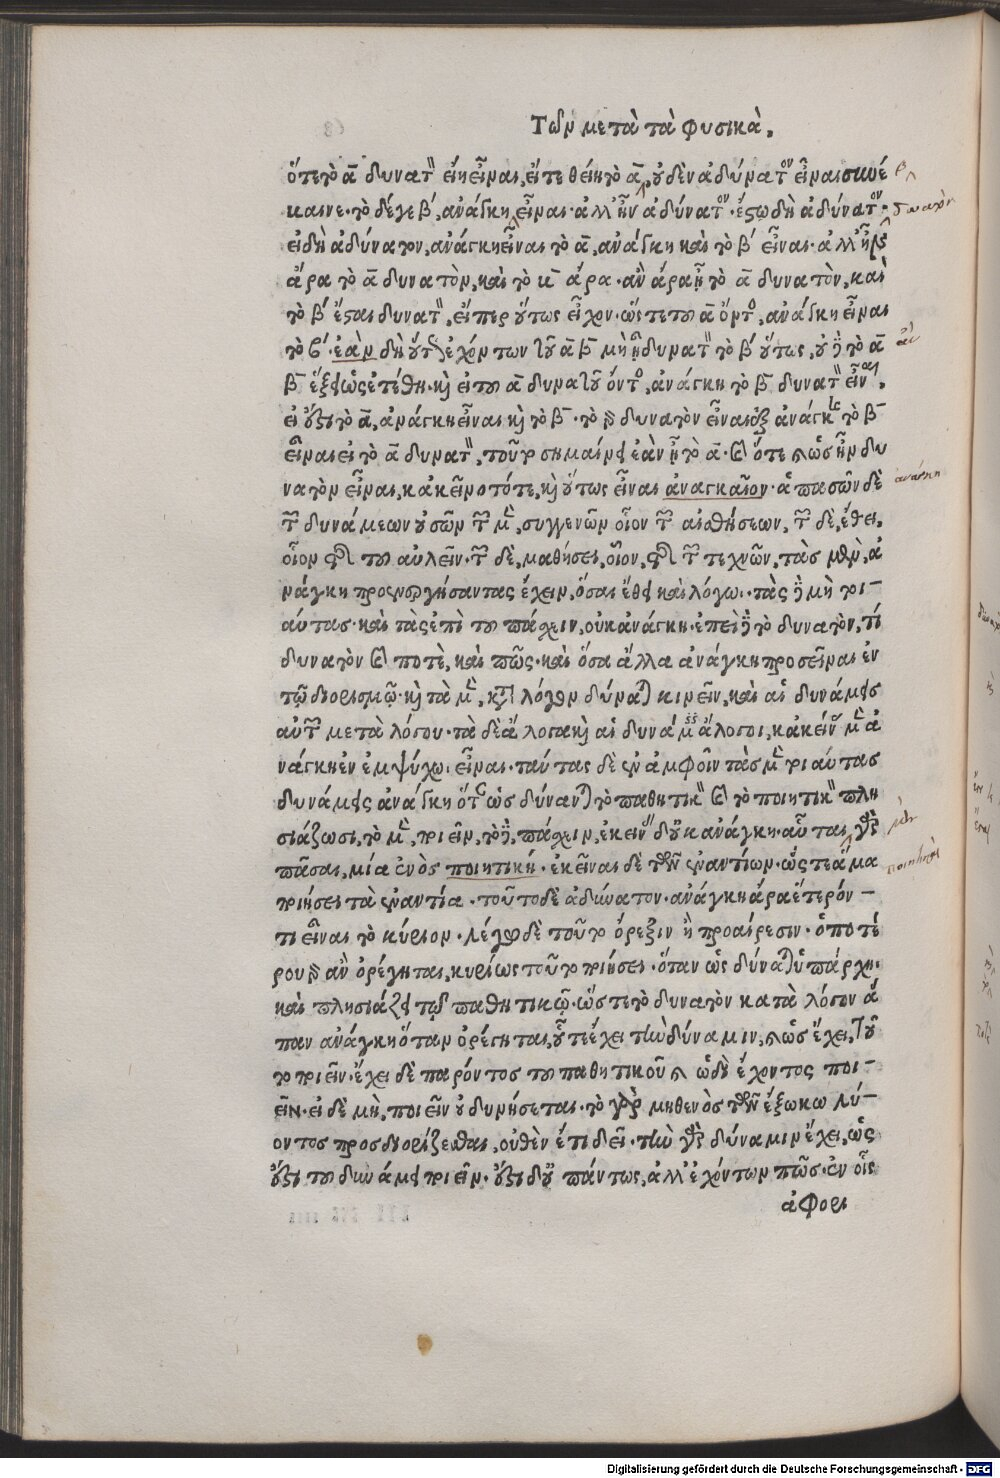 Τῶν μετὰ τὰ φυσικὰ.
ὅτε τὸ ᾱ δυνατὸν εἴη εἶναι, εἴτε θείη τὸ ᾱ, οὐδὲν ἀδύνατον εἶναι συνέ
βαινε. τὸ δέγε β΄, ἀνάγκη εἶναι. ἀλλ' ἦν ἀδύνατον. ἔστω δὴ ἀδύνατον.
εἰ δὴ ἀδύνατον, ἀνάγκη εἶναι τὸ ᾱ, ἀνάγκη καὶ τὸ β΄ εἶναι. ἀλλ' ἦν
ἄρα τὸ ᾱ δυνατὸν, καὶ τὸ ἄρα. ἂν ἄρα ἦ τὸ ᾱ δυνατὸν, καὶ
τὸ β΄ ἔσται δυνατὸν, εἴπερ οὕτως εἶχον. ὥς τε τοῦ ᾱ ὄντος, ἀνάγκη εἶναι
τὸ β΄. ἐὰν δὴ οὕτως ἐχόντων τῶν ᾱ β̄ μὴ ἦ δυνατὸν τὸ β΄ οὕτως, οὐδὲ τὸ ᾱ
β̄ ἕξει ὡς ἐτέθη. καὶ εἰ τοῦ ᾱ δυνατοῦ ὄντος, ἀνάγκη τὸ β̄ δυνατὸν εἶναι.
εἰ ἔστι τὸ ᾱ, ἀνάγκη εἶναι καὶ τὸ β̄. τὸ δὴ δυνατὸν εἶναι ἐξ ἀνάγκης τὸ β̄
εἶναι εἰ τὸ ᾱ δυνατὸν, τοῦτο σημαίνει ἐὰν ἦ τὸ ᾱ. καὶ ὅτε καὶ ὡς ἦν δυ
νατὸν εἶναι, κἀκεῖνο τότε, καὶ οὕτως εἶναι ἀναγκαῖον. ἁπασῶν δὲ
τῶν δυνάμεων οὐσῶν τῶν μὲν, συγγενῶν οἷον τῶν αἰσθήσεων, τῶν δὲ, ἔθει,
οἷον τῆς τοῦ αὐλεῖν. τῶν δὲ, μαθήσει, οἷον, τῆς τῶν τεχνῶν, τὰς μὲν, ἀ
νάγκη προενεργήσαντας ἔχειν, ὅσαι ἔθει καὶ λόγωι. τὰς δὲ μὴ τοι-
αύτας. καὶ τὰς ἐπὶ τοῦ πάχειν, οὐκ ἀνάγκη. ἐπεὶ δὲ τὸ δυνατὸν, τί
δυνατὸν καὶ ποτὲ, καὶ πῶς. καὶ ὅσα ἄλλα ἀνάγκη προσεῖναι ἐν
τῷ διορισμῷ. καὶ τὰ μὲν, κατὰ λόγον δύναται κινεῖν, καὶ αἱ δυνάμεις
αὐτῶν μετὰ λόγου. τὰ δὲ ἄλογα καὶ αἱ δυνάμεις ἄλογοι, κἀκείνας μὲν ἀ
νάγκη ἐν ἐμψύχωι εἶναι. ταύτας δὲ ἐν ἀμφοῖν τὰς μὲν τοιαύτας
δυνάμεις ἀνάγκη ὅταν ὡς δύνανται τὸ παθητικὸν καὶ τὸ ποιητικὸν πλη
σιάζωσι, τὸ μὲν, ποιεῖν, τὸ δὲ, πάχειν, ἐκείνας δ' οὐκ ἀνάγκη. αὗται, γὰρ
πᾶσαι, μία ἑνὸς ποιητική. ἐκεῖναι δὲ τῶν ἐναντίων. ὥς τε ἅμα
ποιήσει τὰ ἐναντία. τοῦτο δὲ ἀδύνατον. ἀνάγκη ἄρα ἕτερόν -
τι εἶναι τὸ κύριον. λέγω δὲ τοῦτο ὄρεξιν ἢ προαίρεσιν. ὁποτέ
ρου δὴ ἂν ὀρέγηται, κυρίως τοῦτο ποιήσει. ὅταν ὡς δύναται ὑπάρχηι
καὶ πλησιάζει τῷ παθητικῷ. ὥστε τὸ δυνατὸν κατὰ λόγον ἅ
παν ἀνάγκη ὅταν ὀρέγηται, οὗ τε ἔχει τὴν δύναμιν, καὶ ὡς ἔχει, τοῦ
το ποιεῖν. ἔχει δὲ παρόντος τοῦ παθητικοῦ καὶ ὡδὶ ἔχοντος ποι-
εῖν. εἰ δὲ μὴ, ποιεῖν οὐ δυνήσεται. τὸ γὰρ μηθενὸς τῶν ἔξω κωλύ-
οντος προσδιορίζεσθαι, οὐθὲν ἔτι δεῖ. τὴν γὰρ δύναμιν ἔχει, ὡς
ἔστι τοῦ δυνάμει ποιεῖν. ἔστι δ' οὐ πάντως, ἀλλ' ἐχόντων πῶς. ἐν οἷς
ἀφορι
Digitalisierung gefördert durch die Deutsche Forschungsgemeinschaft - DFG